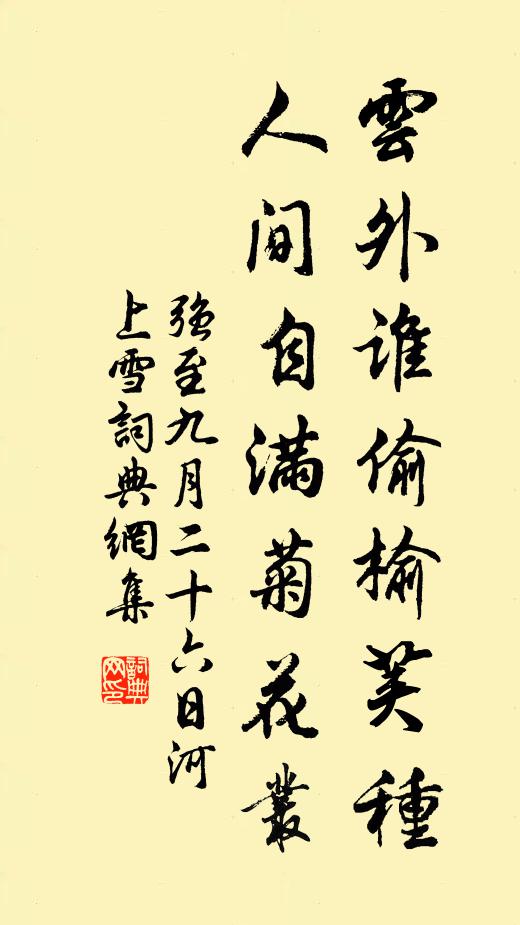 雲外誰偷榆荚種
人间自满菊花叢
强至九月二十六日河
上雪詞典網集
詞典
网印